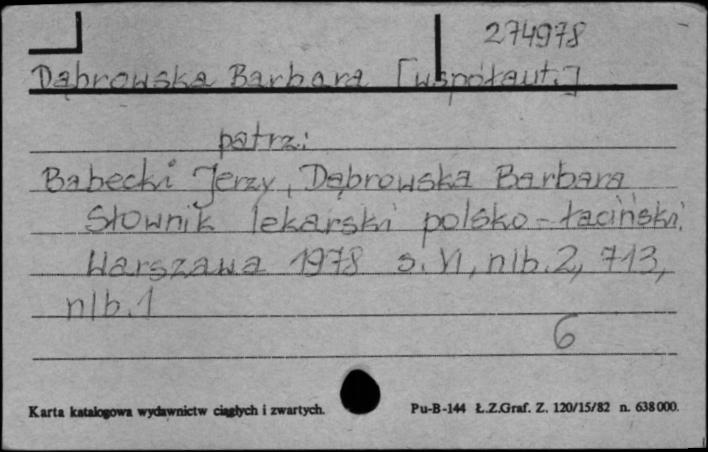 274978
Dąbrowska Barbara [współaut.]
patrz:
Babecki Jerzy, Dąbrowska Barbara
Słownik lekarski polsko-łaciński.
Warszawa 1978 s. VI, nlb. 2, 713,
nlb. 1
6
Karta katalogowa wydawnictw ciągłych i zwartych.
Pu-B-144 Ł.Z.Graf. Z. 120/15/82 n. 638000.